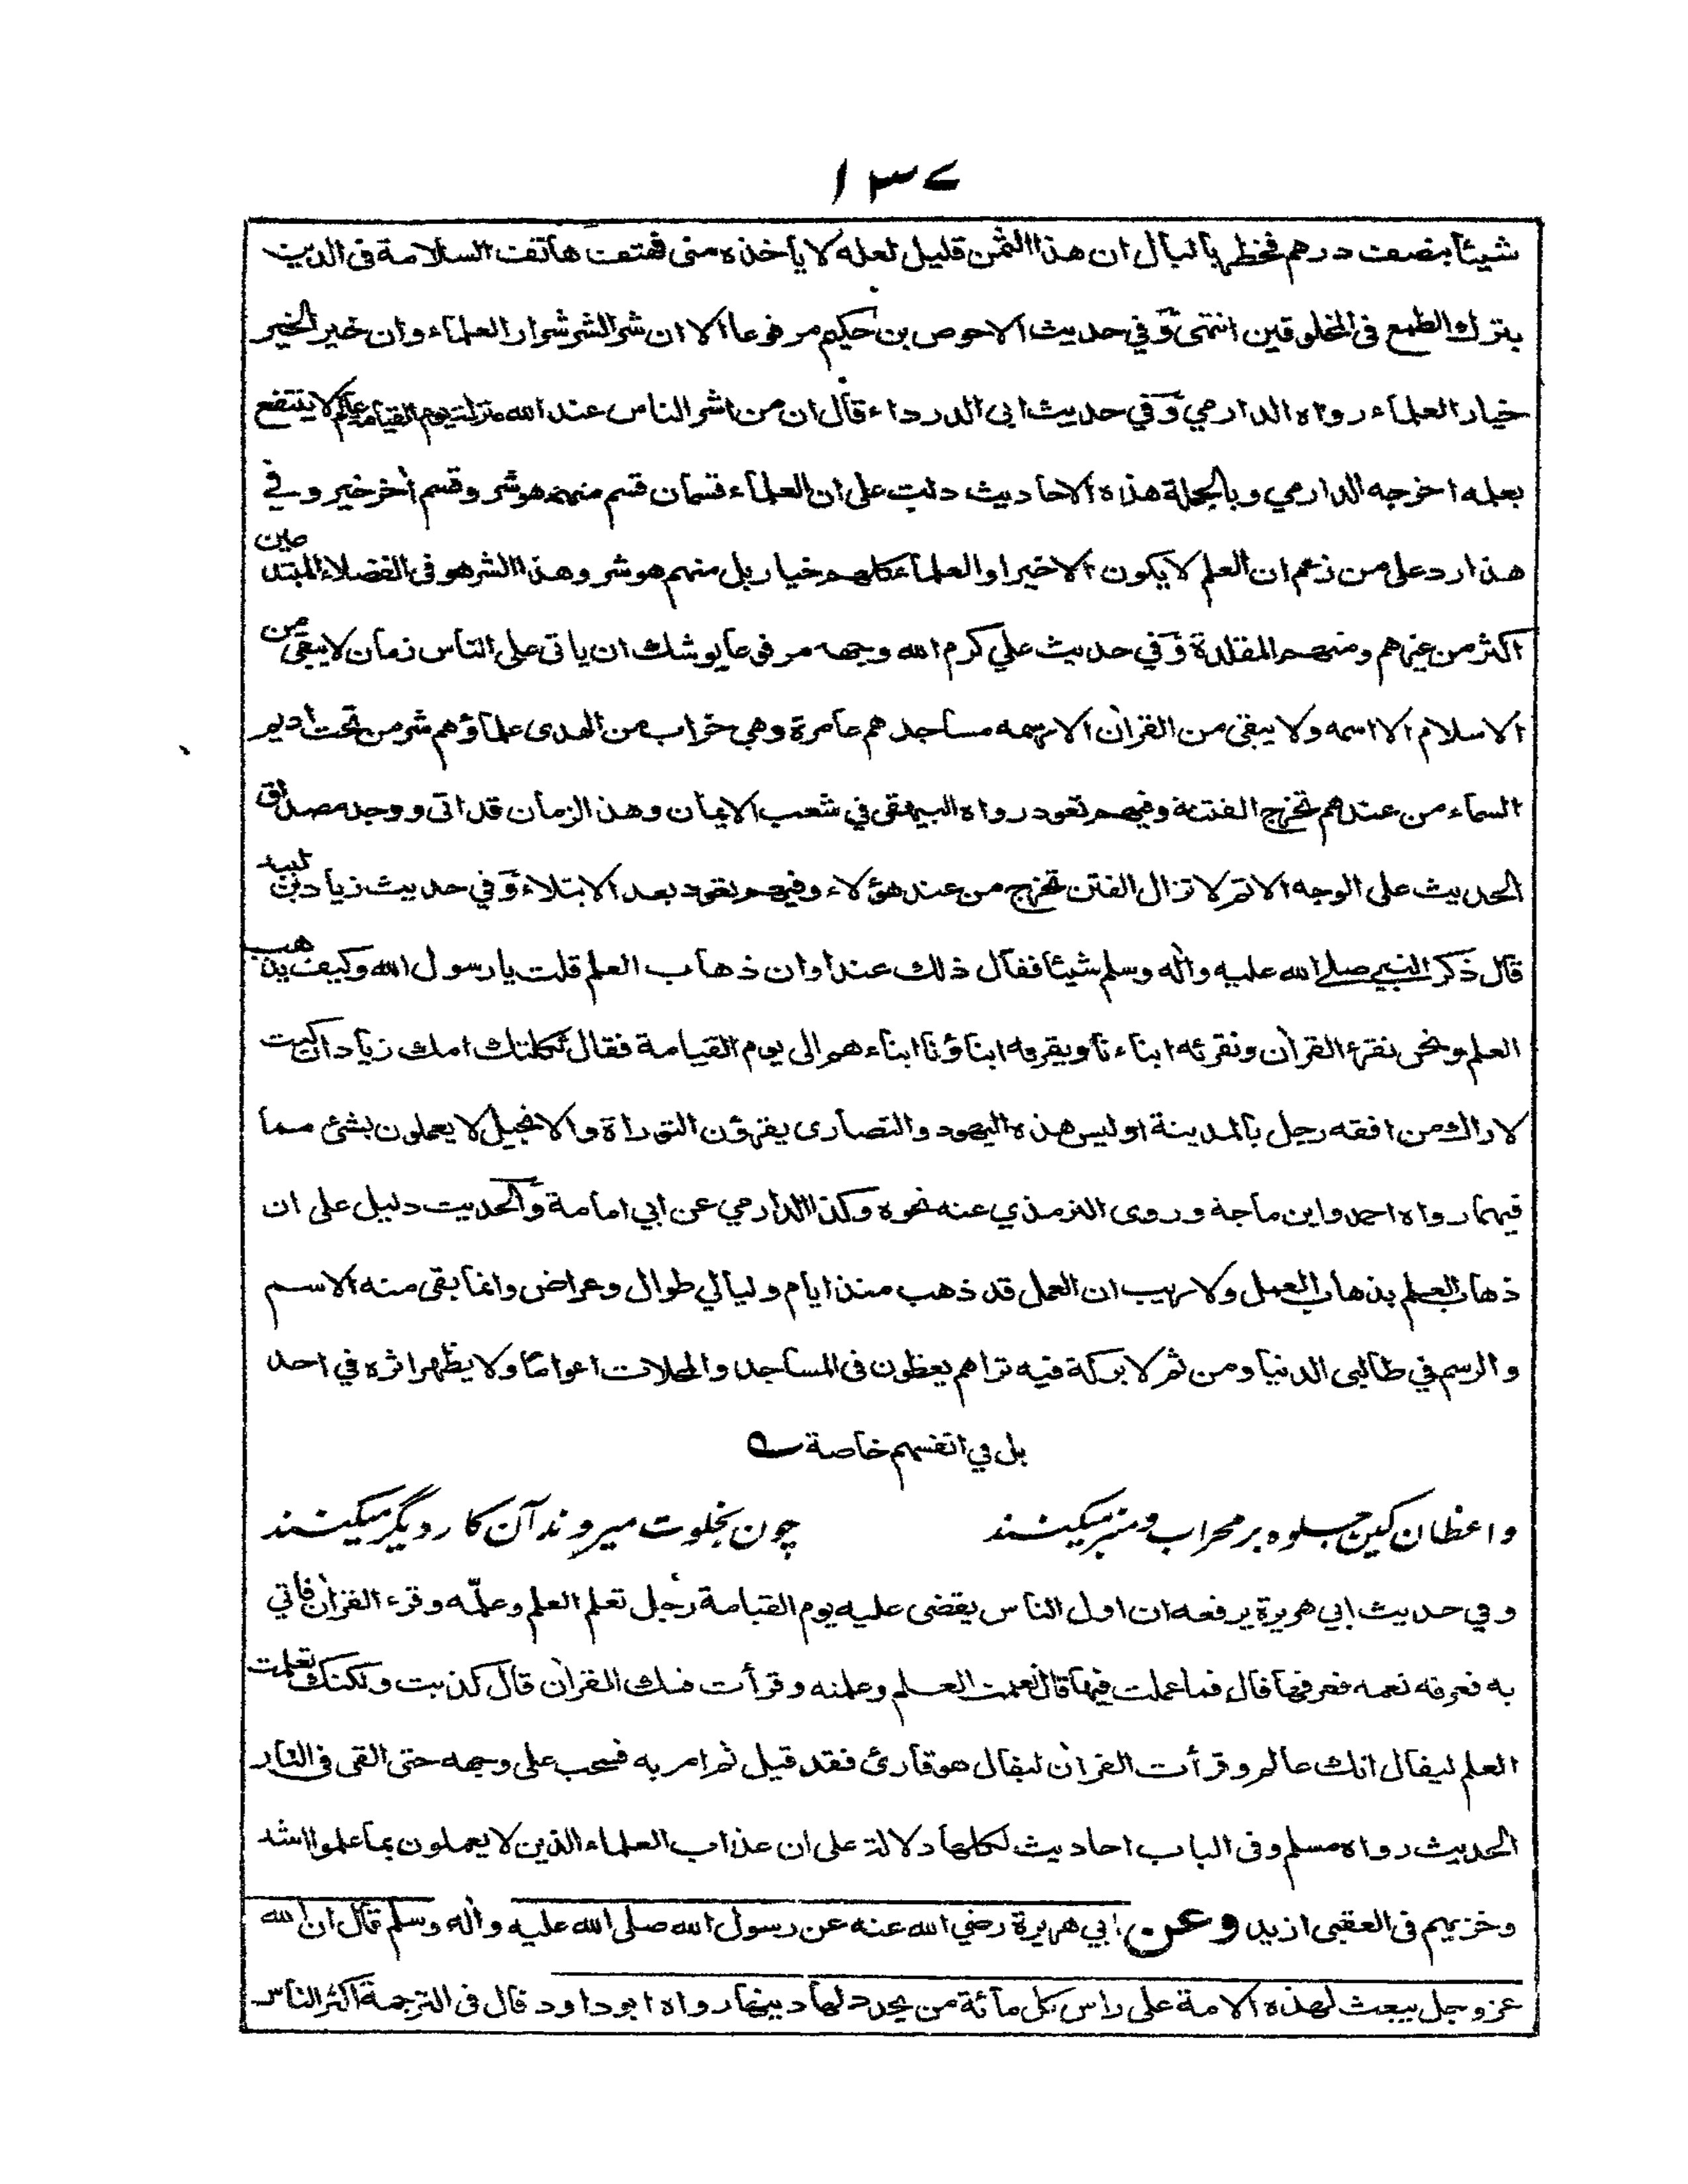 ١٣٧
شيئا بنصف درهم فخطر بالبال ان هذا الثمن قليل لعله لا يأخذه مني فهتف هاتف السلامة فى الدين
بترك الطمع فى المخلوقين انتهى وفي حديث الاحوص بن حكيم مرفوعا الا ان شر الشر شرار العلماء وان خير الخير
خيار العلماء رواه الدارمي وفي حديث ابى الدرداء قال ان من اشر الناس عند الله منزلة يوم القيامة عالم لا ينتفع
بعلمه اخرجه الدارمي وبالجملة هذه الاحاديث دلت على ان العلماء قسمان قسم منهم هو شر وقسم أخر خير وفي
هذا رد على من زعم ان العلم لا يكون الا خيرا والعلماء كلهم خيار بل منهم هو شر وهذا الشر هو فى الفضلاء المبتدعين
اكثر من غيرهم ومنهم المقلدة وفي حديث علي كرم الله وجهه مرفوعا يوشك ان ياتى على الناس زمان لا يبقى من
الاسلام الا اسمه ولا يبقى من القرأن الا رسمه مساجدهم عامرة وهي خراب من الهدى علماؤهم شر من تحت اديم
السماء من عندهم تخرج الفتنة وفيهم تعود رواه البيهقى في شعب الايمان وهذا الزمان قد اتى ووجد مصداق
الحديث على الوجه الاتم لا تزال الفتن تخرج من عند هؤلاء وفيهم تعود بعد الابتلاء وفي حديث زياد بن لبيد
قال ذكر النبي صلے الله عليه واٰله وسلم شيئا فقال ذلك عند أوان ذهاب العلم قلت يا رسول الله وكيف يذهب
العلم ونحن نقرء القرأن ونقرئه ابناءنا ويقرءه ابناؤنا ابناءهم الى يوم القيامة فقال ثكلتك امك زياد ان كنت
لاراك من افقه رجل بالمدينة اوليس هذه اليهود والنصارى يقرؤن التوراة والانجيل لا يعملون بشئ مما
فيهما رواه احمد وابن ماجة وروى الترمذي عنه نحوه وكذا الدارمي عن ابي امامة والحديث دليل على ان
ذهاب العلم بذهاب العمل ولا ريب ان العمل قد ذهب منذ ايام وليالي طوال وعراض وانما بقى منه الاسم
والرسم في طالبى الدنيا ومن ثم لا بركة فيه تراهم يعظون فى المساجد والمحلات اعواما ولا يظهر اثره في احد
بل في انفسهم خاصة ؎
واعظان كين جلوه بر محراب ومنبر ميكنند چون بخلوت ميروند آن كار ديگر ميكنند
وفي حديث ابي هريرة يرفعه ان اول الناس يقضى عليه يوم القيامة رجل تعلم العلم وعلّمه وقرء القرأن فاتي
به فعرفه نعمه فعرفها قال فما عملت فيها قال تعلمت العلم وعلمته وقرأت فيك القرأن قال كذبت ولكنك تعلمت
العلم ليقال انك عالم وقرأت القرأن ليقال هو قارئ فقد قيل ثم امر به فسحب على وجهه حتى القى فى النار
الحديث رواه مسلم وفى الباب احاديث لكلها دلالة على ان عذاب العلماء الذين لا يعملون بما علموا اشد
وخزيهم فى العقبى ازيد وعن ابي هريرة رضي الله عنه عن رسول الله صلى الله عليه واٰله وسلم قال ان الله
عز وجل يبعث لهذه الامة على راس كل مائة من يجدد لها دينها رواه ابو داود قال فى الترجمة اكثر الناس